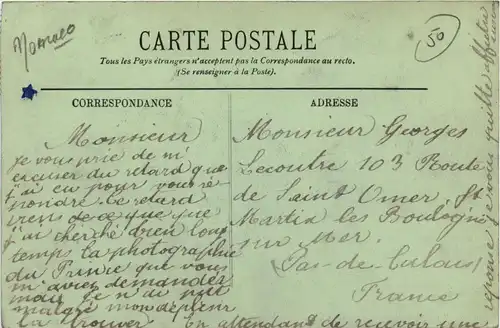 Monaco
50
CARTE POSTALE
Tous les Pays étrangers n'acceptent pas la Correspondance au recto.
(Se renseigner à la Poste).
CORRESPONDANCE
Monsieur
Je vous prie de m'
excuser du retard que
j'ai eu pour vous ré-
pondre. Ce retard
viens de ce que que
j'ai cherché bien long
temps la photographie
du Prince que vous
m'aviez demandez
mais je n'ai put
malgré mon déplaisir
la trouver. En attendant de recevoir une
réponse
ADRESSE
Monsieur Georges
Lecoutre 103 Route
de Saint Omer, St
Martin les Boulogne
sur Mer.
Pas-de-Calais
France